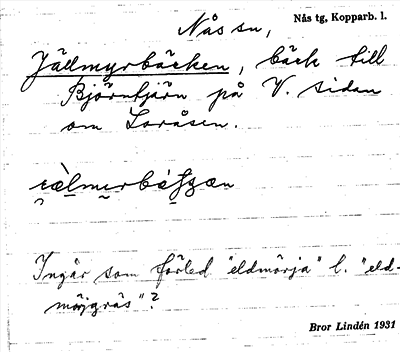 Nås sn,
Nås tg, Kopparb. l.
Jällmyrbäcken, bäck till
Björntjärn på V. sidan
om Loråsen.
Ingår som förled "eldmörja" l. "eld-
mörjgräs"?
Bror Lindén 1931